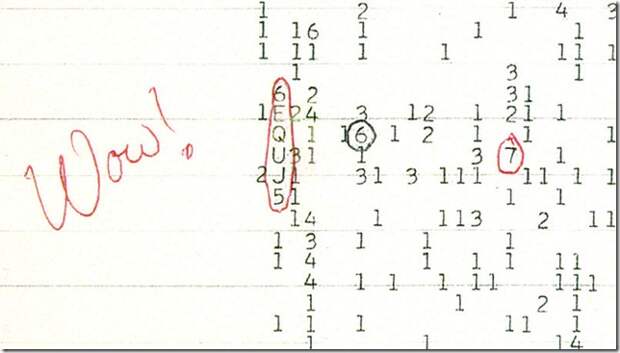 1 2 1 4 3
1 16 1 1 1
1 11 1 1 11 1
1 3 1
6 2 31
1 E 24 3 12 1 21 1
Wow!
Q 1 16 1 2 1 1 1 1
U 31 1 3 7 1
2 J 1 31 3 111 11 1 1
5 1 1 1
14 1 113 2 11
1 3 1 1 1
1 4 1 1 1 11
4 1 1 1 11 111
1 1 2 1
1 1 1 1 11 1
1 1 14